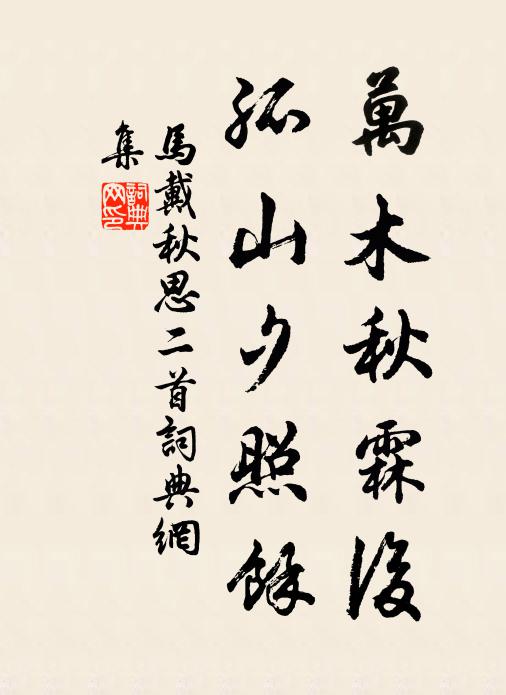 萬木秋霖後
孤山夕照餘
馬戴秋思二首詞典網
集
詞典网印